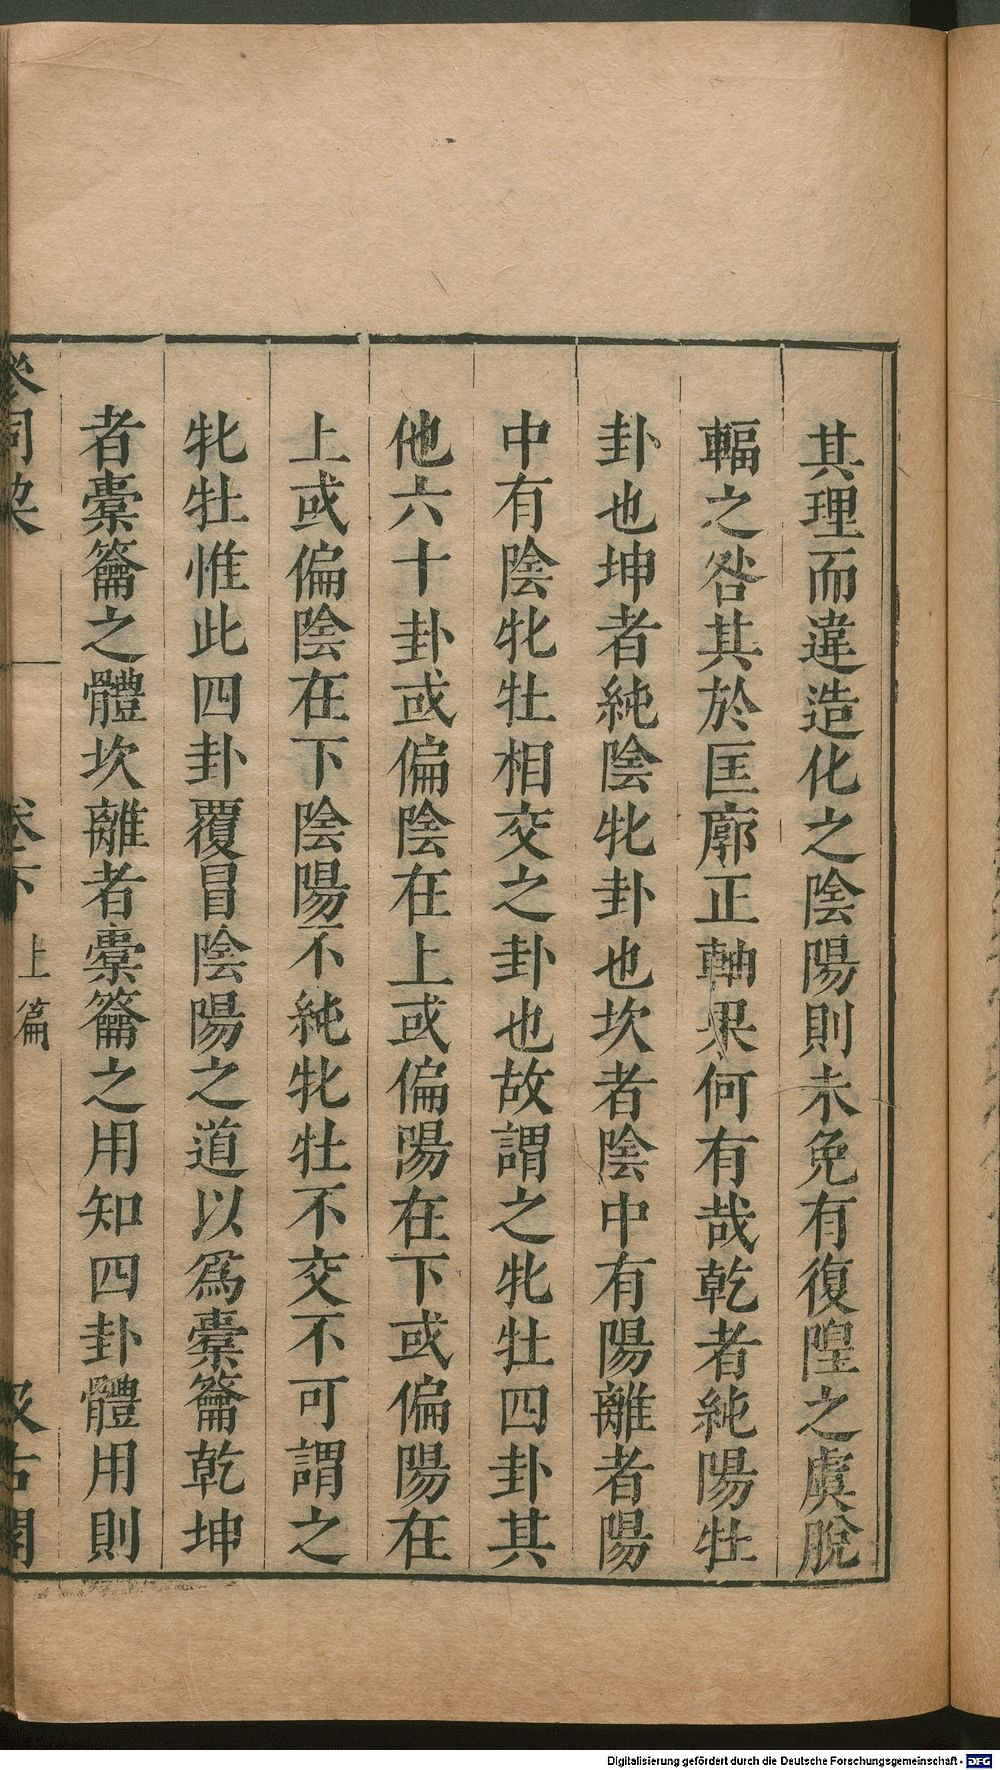 其理而違造化之陰陽則未免有復隍之虞脫
輻之咎其於匡廓正軸果何有哉乾者純陽牡
卦也坤者純陰牝卦也坎者陰中有陽離者陽
中有陰牝牡相交之卦也故謂之牝牡四卦其
他六十卦或偏陰在上或偏陽在下或偏陽在
上或偏陰在下陰陽不純牝牡不交不可謂之
牝牡惟此四卦覆冒陰陽之道以爲橐籥乾坤
者橐籥之體坎離者橐籥之用知四卦體用則
參同契 卷下 上篇 汲古閣
Digitalisierung gefördert durch die Deutsche Forschungsgemeinschaft - DFG